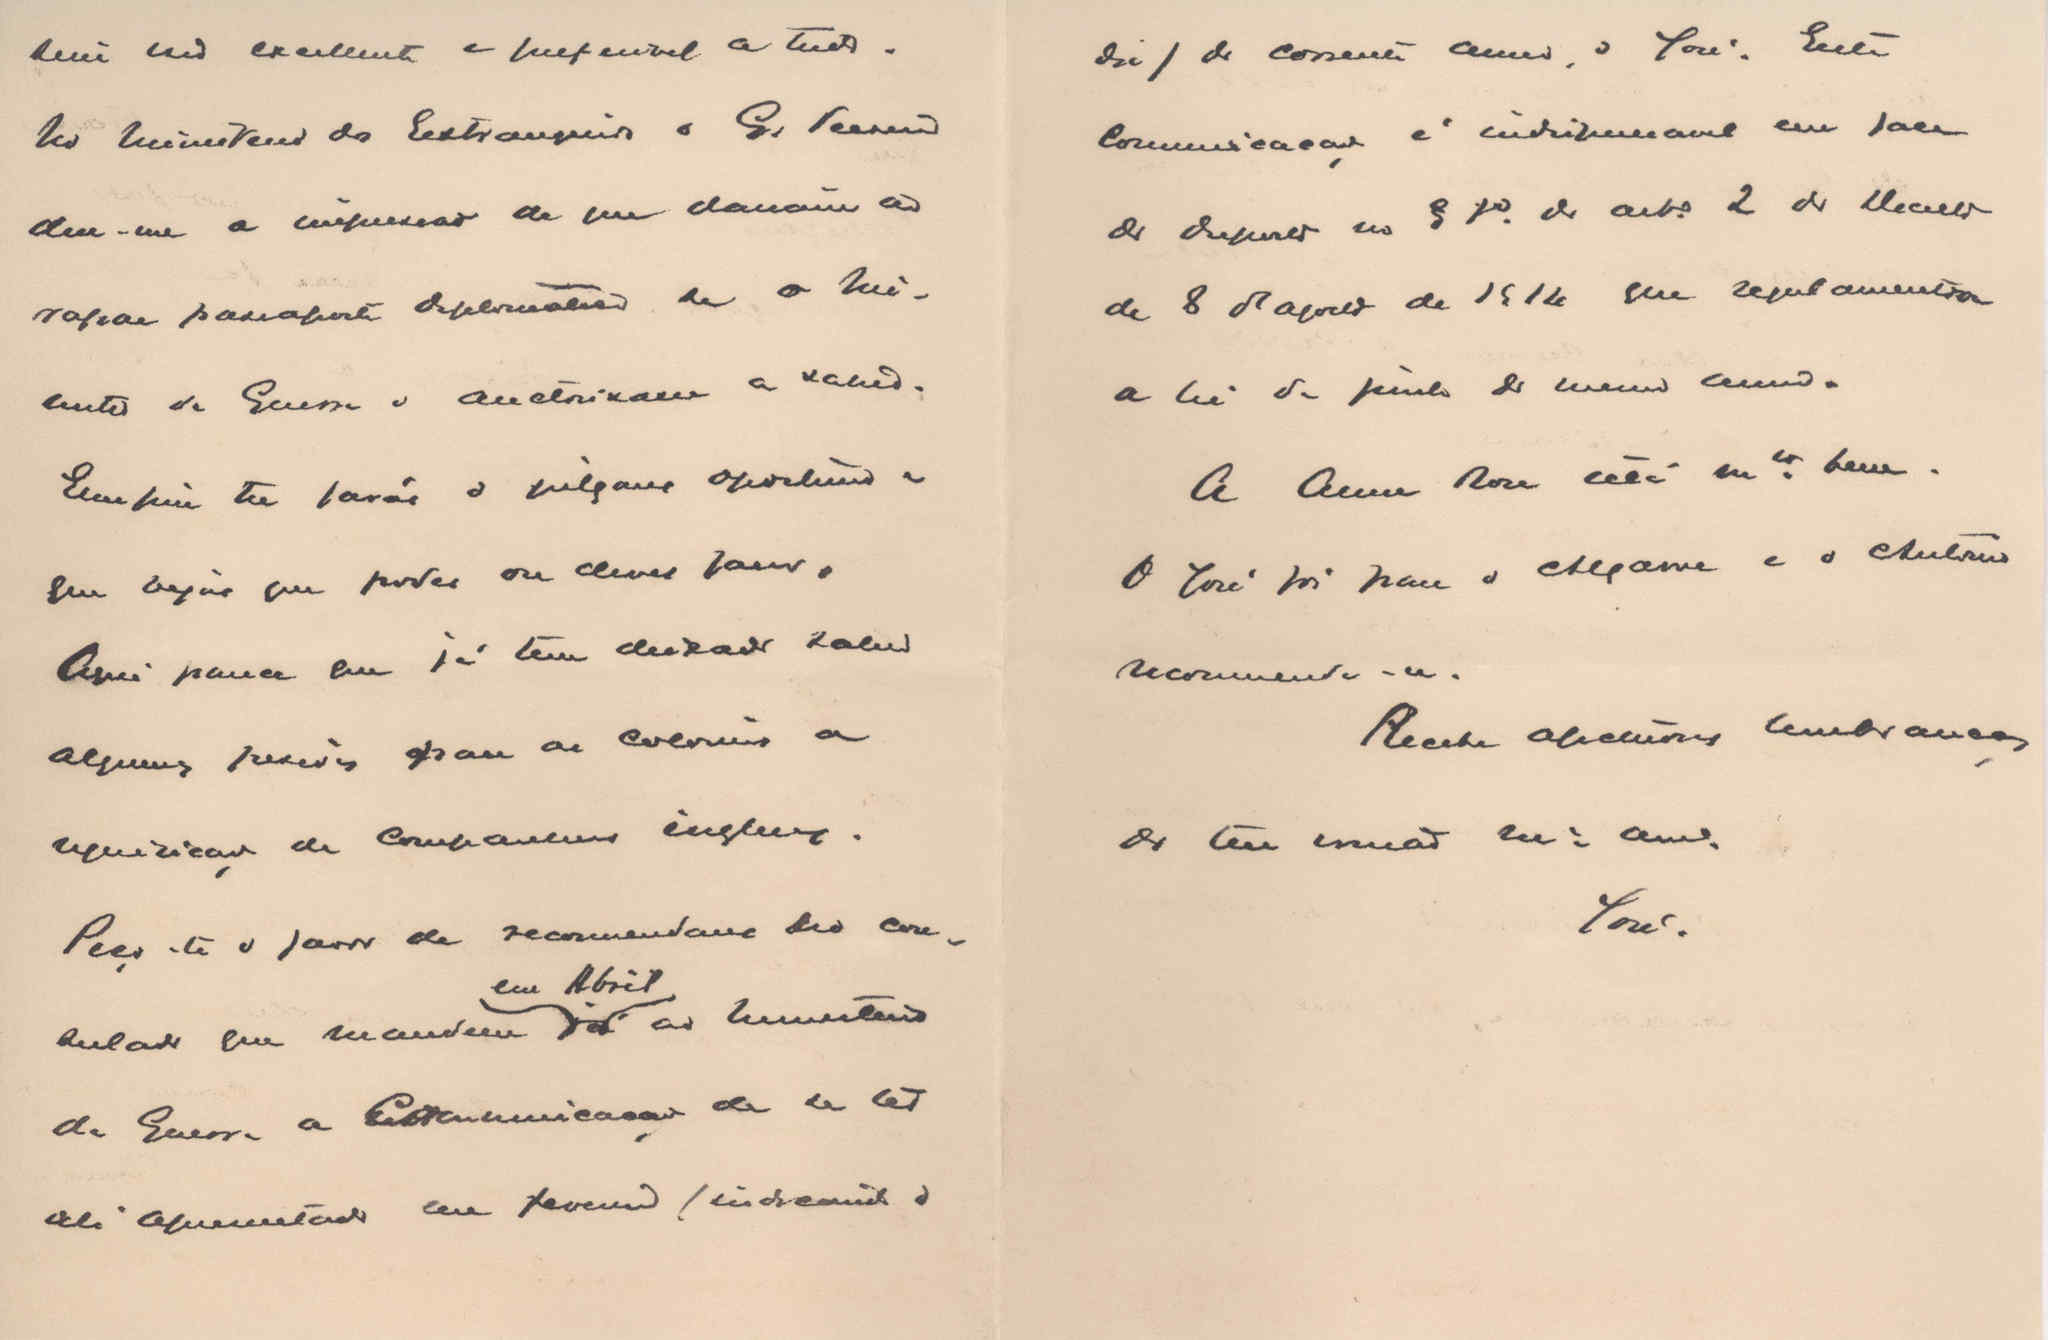 seria isso excellente e preferivel a tudo.
No Ministerio dos Extrangeiros o Gs. Pereira
deu-me a impressão de que dariam ao
rapaz passaporte diplomatico se o Mi-
nisterio da Guerra o auctorisasse a sahir.
Emfim tu farás o julgares oportuno e
que vejas que podes ou deves fazer.
Aqui parece que já tem deixado sahir
algumas pessoas para as colonias a
requisição de companhias inglezas.
Peço-te o favor de recommendares no con-
em Abril
sulado que mandem já ao Ministerio
da Guerra a communicação de se ter
ahi apresentado em Fevereiro (indicando o
dia) do corrente anno, o José. Esta
communicação é indispensavel em face
do disposto no § 1º. do artº. 2 do Decreto
de 8 d'agosto de 1914 que regulamentou
a lei de junho do mesmo anno.
A Anna Rosa está mtº. bem.
O José foi para o Algarve e o Antonio
recommenda-se.
Recebe afectuosas lembranças
do teu irmão mtº amº.
José.